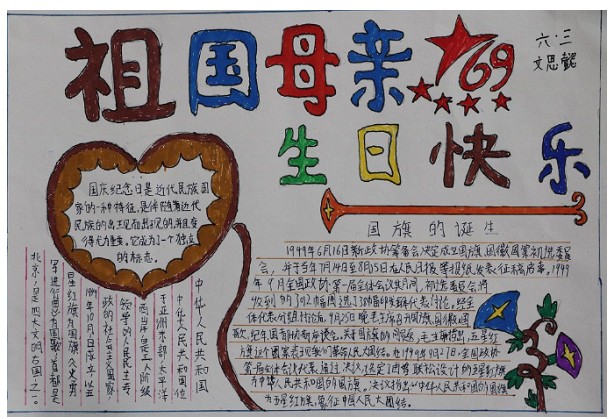 祖国母亲 69
六·三
文思懿
生日快乐
国庆纪念日是近代民族国
家的一种特征,是伴随着近代
民族的出现而出现的,并且变
得尤为重要。它成为一个独立
的标志。
中华人民共和国
中华人民共和国位
于亚洲东部太平洋
西岸是工人阶级
领导的人民民主专
政的社会主义国家
1949年10月1日成立以五
星红旗为国旗《义勇
军进行曲》为国歌首都是
北京,是四大文明古国之一。
国旗的诞生
1949年6月16日新政协筹备会决定成立国旗、国徽国案初选委员
会,并于当年7月14日至8月15日在人民日报等报纸发表征稿启事,1949
年9月全国政协第一届全体会议期间,初选委员会将
收到的
体代表分组讨论后,9月25日晚毛主席召开国旗、国徽、国
歌、纪年、国都协商座谈会,关于国旗的问题,毛主席指出,五星红
旗这个图案表现我们革命人民大团结。在1949年9月27日,全国政协
第一届全体会议代表,通过决议选定了曾联松设计的五星红旗
为中华人民共和国的国旗,决议指出“中华人民共和国的国旗
为五星红旗,象征中国人民大团结。